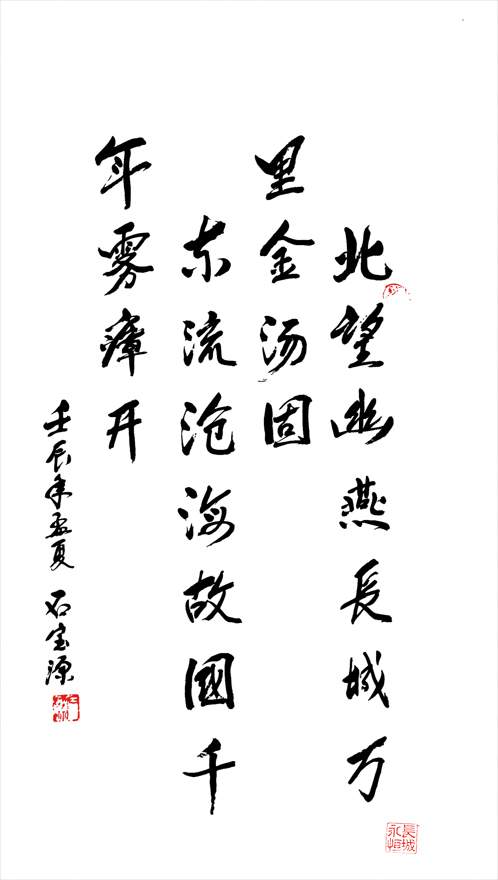 北望幽燕長城万
里金汤固
东流沧海故國千
年雾瘴开
壬辰年孟夏 石宝源
長城永恒